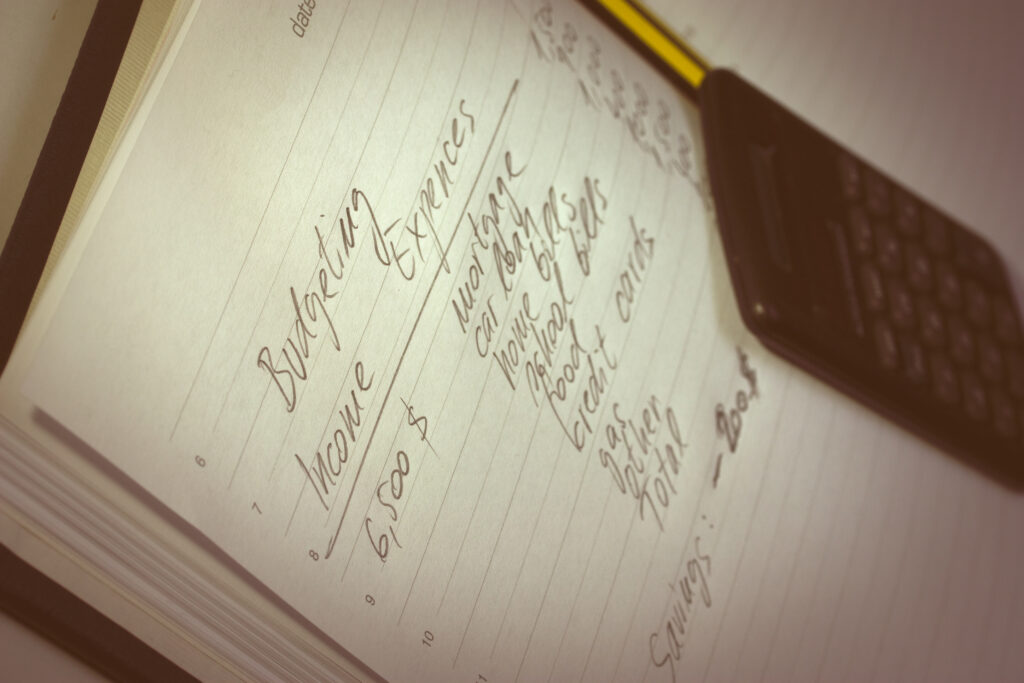 date
Budgeting
Income Expences
6,500 $ mortgage
car loan
home bills
school bills
food
credit cards
gas
other
Total
Savings: - 200 $
6
7
8
9
10
11